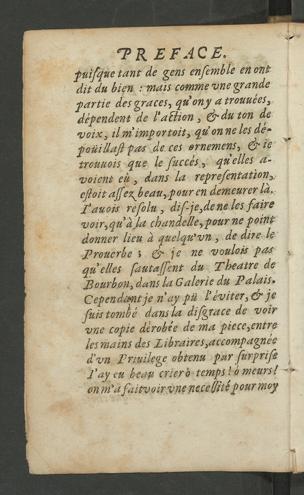 PREFACE.
puiſque tant de gens enſemble en ont
dit du bien : mais comme vne grande
partie des graces, qu'on y a trouuées,
dépendent de l'action, & du ton de
voix, il m'importoit, qu'on ne les dé-
poüillaſt pas de ces ornemens, & ie
trouuois que le ſuccés, qu'elles a-
voient eû, dans la repreſentation,
eſtoit aſſez beau, pour en demeurer là.
I'auois reſolu, diſ-je, de ne les faire
voir, qu'à la chandelle, pour ne point
donner lieu à quelqu'vn, de dire le
Prouerbe ; & je ne voulois pas
qu'elles ſautaſſent du Theatre de
Bourbon, dans la Galerie du Palais.
Cependant je n'ay pû l'éviter, & je
ſuis tombé dans la diſgrace de voir
vne copie dérobée de ma piece, entre
les mains des Libraires, accompagnée
d'vn Priuilege obtenu par ſurpriſe
I'ay eu beau crier ô temps ! ô mœurs !
on m'a fait voir vne neceſſité pour moy